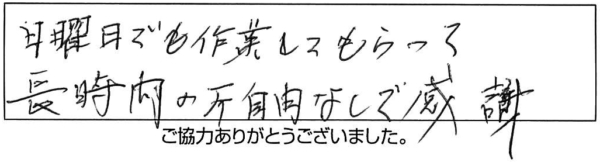 日曜日でも作業してもらって
長時間の不自由なしで感謝
ご協力ありがとうございました。